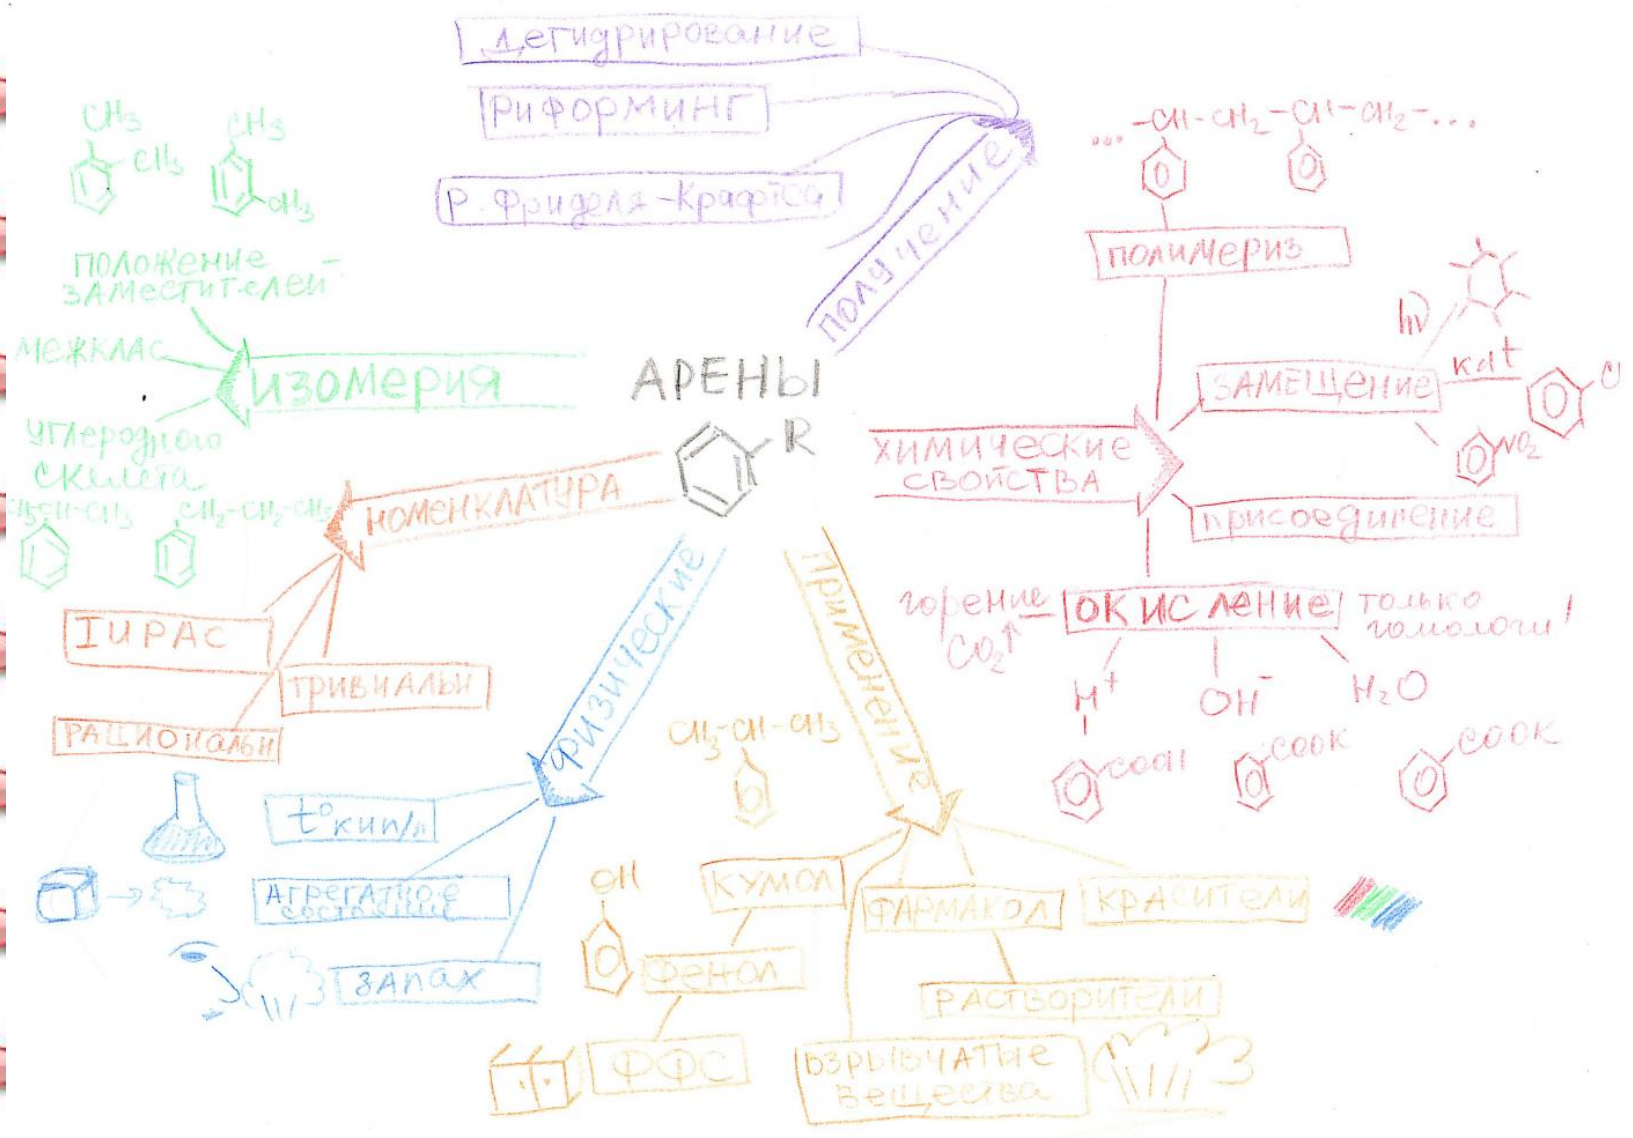 Дегидрирование
РИФОРМИНГ
Р. Фриделя-Крафтса
ПОЛУЧЕНИЕ
CH3
CH3
CH3
CH3
ПОЛОЖЕНИЕ
ЗАМЕСТИТЕЛЕЙ
МЕЖКЛАС
ИЗОМЕРИЯ
УГЛЕРОДНОГО
СКЕЛЕТА
CH3-CH-CH3
CH2-CH2-CH3
АРЕНЫ
R
НОМЕНКЛАТУРА
IUPAC
ТРИВИАЛЬН
РАЦИОНАЛЬН
ФИЗИЧЕСКИЕ
t°кип/п
АГРЕГАТНОЕ
состояние
ЗАПАХ
ПРИМЕНЕНИЕ
CH3-CH-CH3
КУМОЛ
OH
ФЕНОЛ
ФФС
ФАРМАКОЛ
КРАСИТЕЛИ
РАСТВОРИТЕЛИ
ВЗРЫВЧАТЫЕ
Вещества
ХИМИЧЕСКИЕ
СВОЙСТВА
... -CH-CH2-CH-CH2-...
ПОЛИМЕРИЗ
ЗАМЕЩЕНИЕ
hν
kat
Cl
NO2
присоединение
горение
CO2↑
ОКИСЛЕНИЕ
только
гомологи!
H+
OH-
H2O
COOH
COOK
COOK